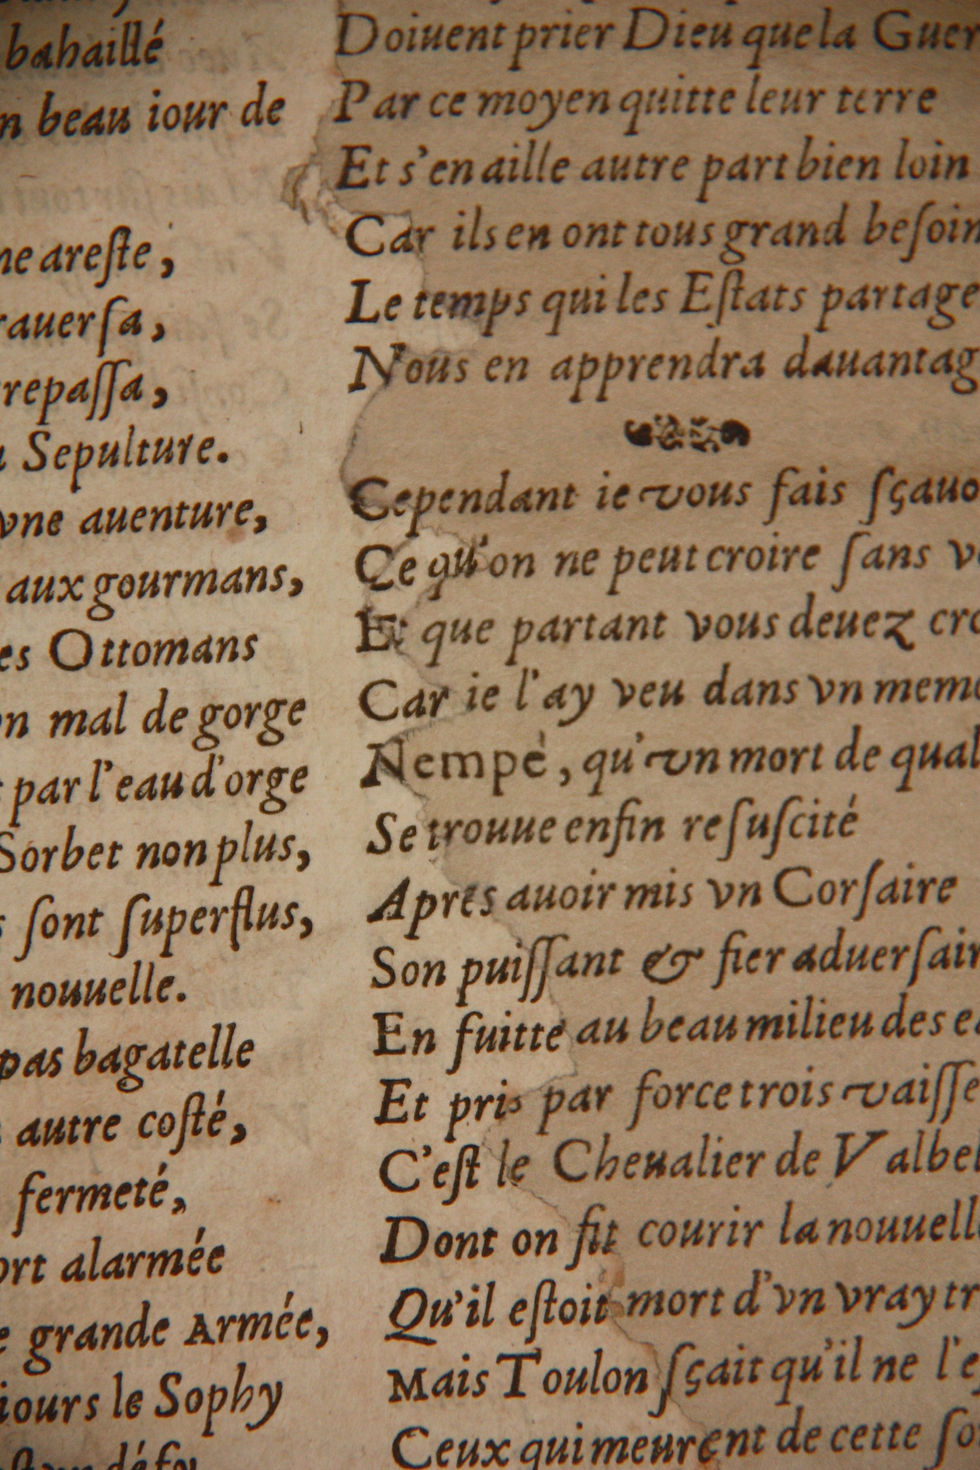 bahaillé
beau iour de
areſte,
Sepulture.
vne auenture,
aux gourmans,
Ottomans
mal de gorge
par l'eau d'orge
Sorbet non plus,
ſont ſuperflus,
nouuelle.
pas bagatelle
autre coſté,
fermeté,
alarmée
grande Armée,
le Sophy
Doiuent prier Dieu que la
Par ce moyen quitte leur terre
Et s'en aille autre part bien loin
Car ils en ont tous grand beſoin
Le temps qui les Eſtats partage
Nous en apprendra
Cependant ie vous fais
Ce qu'on ne peut croire ſans
Et que partant vous deuez
Car ie l'ay veu dans vn
Nempè, qu'vn mort de
Se trouue enfin reſuſcité
Apres auoir mis vn Corſaire
Son puiſſant & fier
En fuitte au beau milieu des
Et pris par force trois
C'eſt le Cheualier de
Dont on fit courir la
Qu'il eſtoit mort d'vn vray
Mais Toulon ſçait qu'il ne
Ceux qui meurent de cette